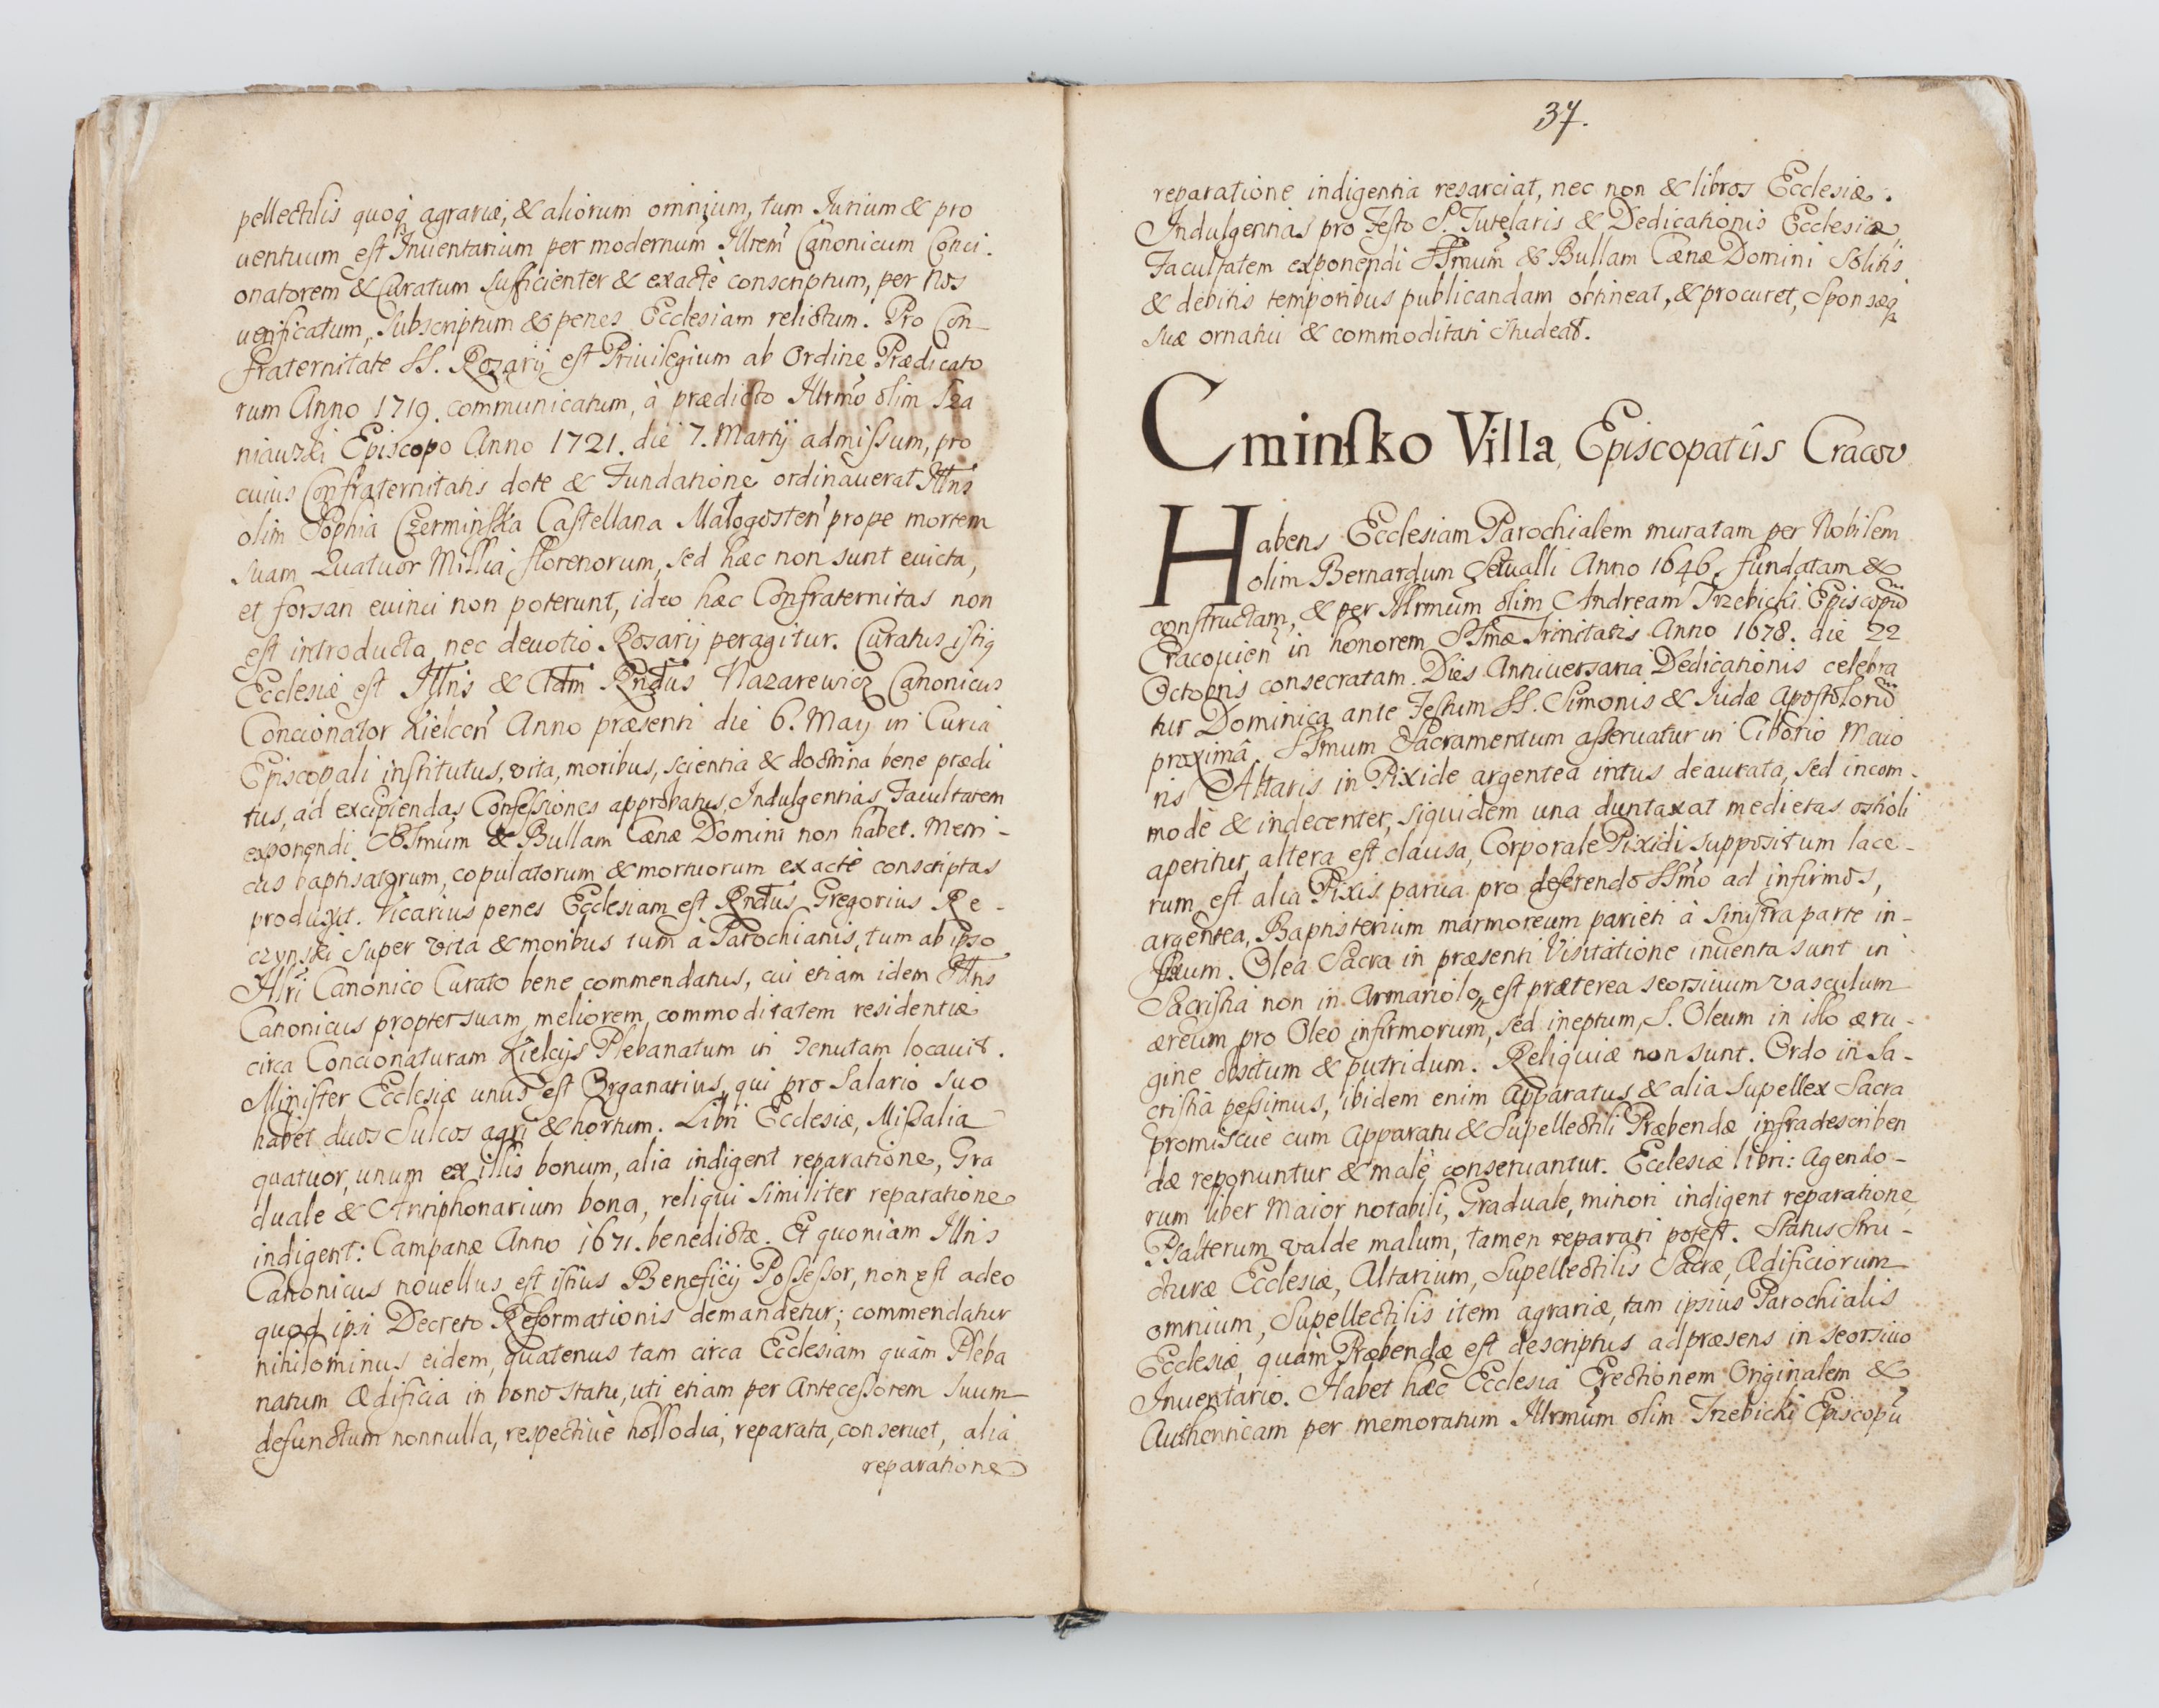 pellectilis quoq agrariæ, & aliorum omnium, tum Iurium & pro
uentuum est Inuentarium per modernum Illrem Canonicum Conci.
onatorem & Curatum sufficienter & exactè conscriptum, per Nos
uerificatum, subscriptum & penes Ecclesiam relictum. Pro Con-
fraternitate SS. Rozarij est Priuilegium ab Ordine Prædicato
rum Anno 1719. communicatum, à prædicto Illrmo olim Sza
niawski Episcopo Anno 1721. die 7. Martij admissum, pro
cuius Confraternitatis dote & Fundatione ordinauerat Illris
olim Sophia Czerminska Castellana Małogosteñ prope mortem
suam Quatuor Millia florenorum, sed hæc non sunt euicta,
et forsan euinci non poterunt, ideo hæc Confraternitas non
est introducta, nec deuotio Rosarij peragitur. Curatus istiq
Ecclesiæ est Illris & Adm Rndus Nazarewicz Canonicus
Concionator Kielceñ Anno præsenti die 6. Maij in Curia
Episcopali institutus, vita, moribus, scientia & doctrina bene prædi
tus, ad excipiendas Confessiones approbatus, Indulgentias Facultatem
exponendi SSmum & Bullam Cænæ Domini non habet. Metri-
cas baptisatorum, copulatorum & mortuorum exactè conscriptas
produxit. Vicarius penes Ecclesiam est Rndus Gregorius Re-
czynski super vita & moribus tum à Parochianis, tum ab ipso
Illri Canonico Curato bene commendatus, cui etiam idem Illris
Canonicus propter suam meliorem commoditatem residentiæ
circa Concionaturam Kielcijs Plebanatum in Tenutam locauit.
Minister Ecclesiæ unus est Organarius, qui pro Salario suo
habet duos Sulcos agri & hortum. Libri Ecclesiæ, Missalia
quatuor, unum ex illis bonum, alia indigent reparatione, Gra
duale & Antiphonarium bona, reliqui similiter reparatione
indigent: Campanæ Anno 1671. benedictæ. Et quoniam Illris
Canonicus nouellus est istius Beneficij Possessor, non est adeo
quod ipsi Decreto Reformationis demandetur; commendatur
nihilominus eidem, quatenus tam circa Ecclesiam quàm Pleba
natum Ædificia in bono statu, uti etiam per Antecessorem suum
defunctum nonnulla, respectiuè hollodia, reparata, conseruet, alia
reparatione
37.
reparatione indigentia resarciat, nec non & libros Ecclesiæ.
Indulgentias pro Festo S. Tutelaris & Dedicationis Ecclesiæ
Facultatem exponendi SSmum & Bullam Cænæ Domini solitis
& debitis temporibus publicandam obtineat, & procuret, Sponsæq
suæ ornatui & commoditati studeat.
Cminsko Villa Episcopatûs Cracov
Habens Ecclesiam Parochialem muratam per Nobilem
olim Bernardum Serualli Anno 1646. fundatam &
constructam, & per Illrmum olim Andream Trzebicki Episcopu
Cracouieñ in honorem SSmæ Trinitatis Anno 1678. die 22
Octobris consecratam. Dies Anniuersaria Dedicationis celebra
tur Dominica ante Festum SS. Simonis & Iudæ Apostoloru
proximâ. SSmum Sacramentum asseruatur in Ciborio Maio
ris Altaris in Pixide argentea intus deaurata, sed incom-
modè & indecenter, siquidem una duntaxat medietas ostioli
aperitur, altera est clausa, Corporale Pixidi suppositum lace-
rum est alia Pixis parua pro deferendo SSmo ad infirmos,
argentea, Baptisterium marmoreum parieti à sinistra parte in-
fixum. Olea Sacra in præsenti Visitatione inuenta sunt in
Sacristia non in Armariolo, est præterea seorsiuum vasculum
æreum pro Oleo infirmorum, sed ineptum, S. Oleum in illo æru-
gine obsitum & putridum. Reliquiæ non sunt. Ordo in Sa-
cristia pessimus, ibidem enim Apparatus & alia supellex Sacra
promiscuè cum Apparatu & Supellectili Præbendæ infradescriben
dæ reponuntur & malè conseruantur. Ecclesiæ libri: Agendo-
rum liber Maior notabili, Graduale, minori indigent reparatione
Psalterum valde malum, tamen reparari potest. Status Stru-
cturæ Ecclesiæ, Altarium, Supellectilis Sacræ, Ædificiorum
omnium, Supellectilis item agrariæ, tam ipsius Parochialis
Ecclesiæ, quàm Præbendæ est descriptus ad præsens in seorsiuo
Inuentario. Habet hæc Ecclesia Erectionem Originalem &
Authenticam per memoratum Illrmum olim Trzebicki Episcopu